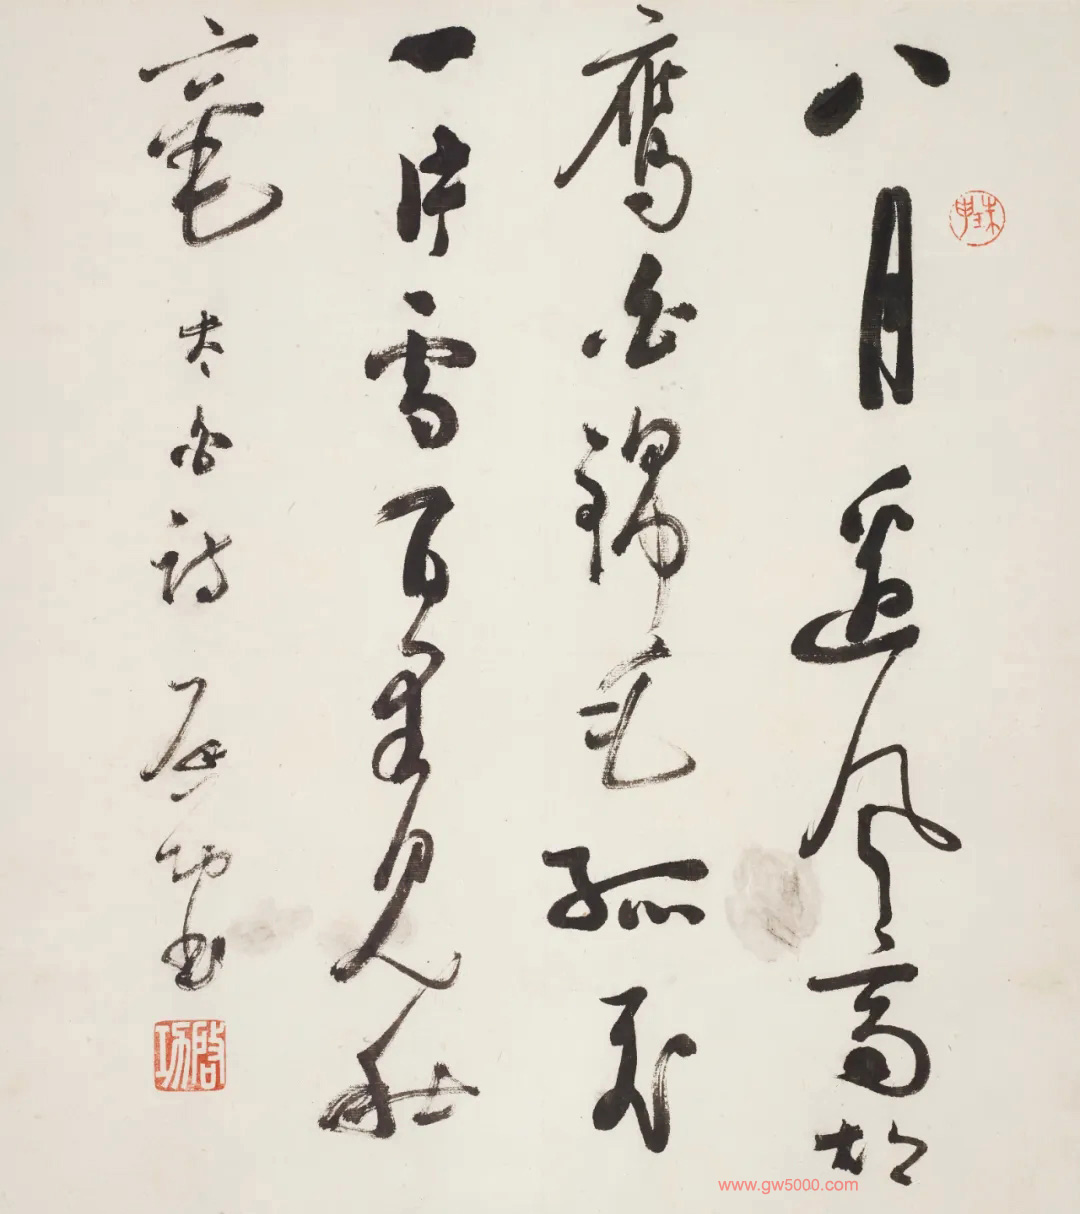 八月边风高胡
鹰白锦毛孤飞
一片雪百里见秋
毫 太白诗 启功书
启功
www.gw5000.com